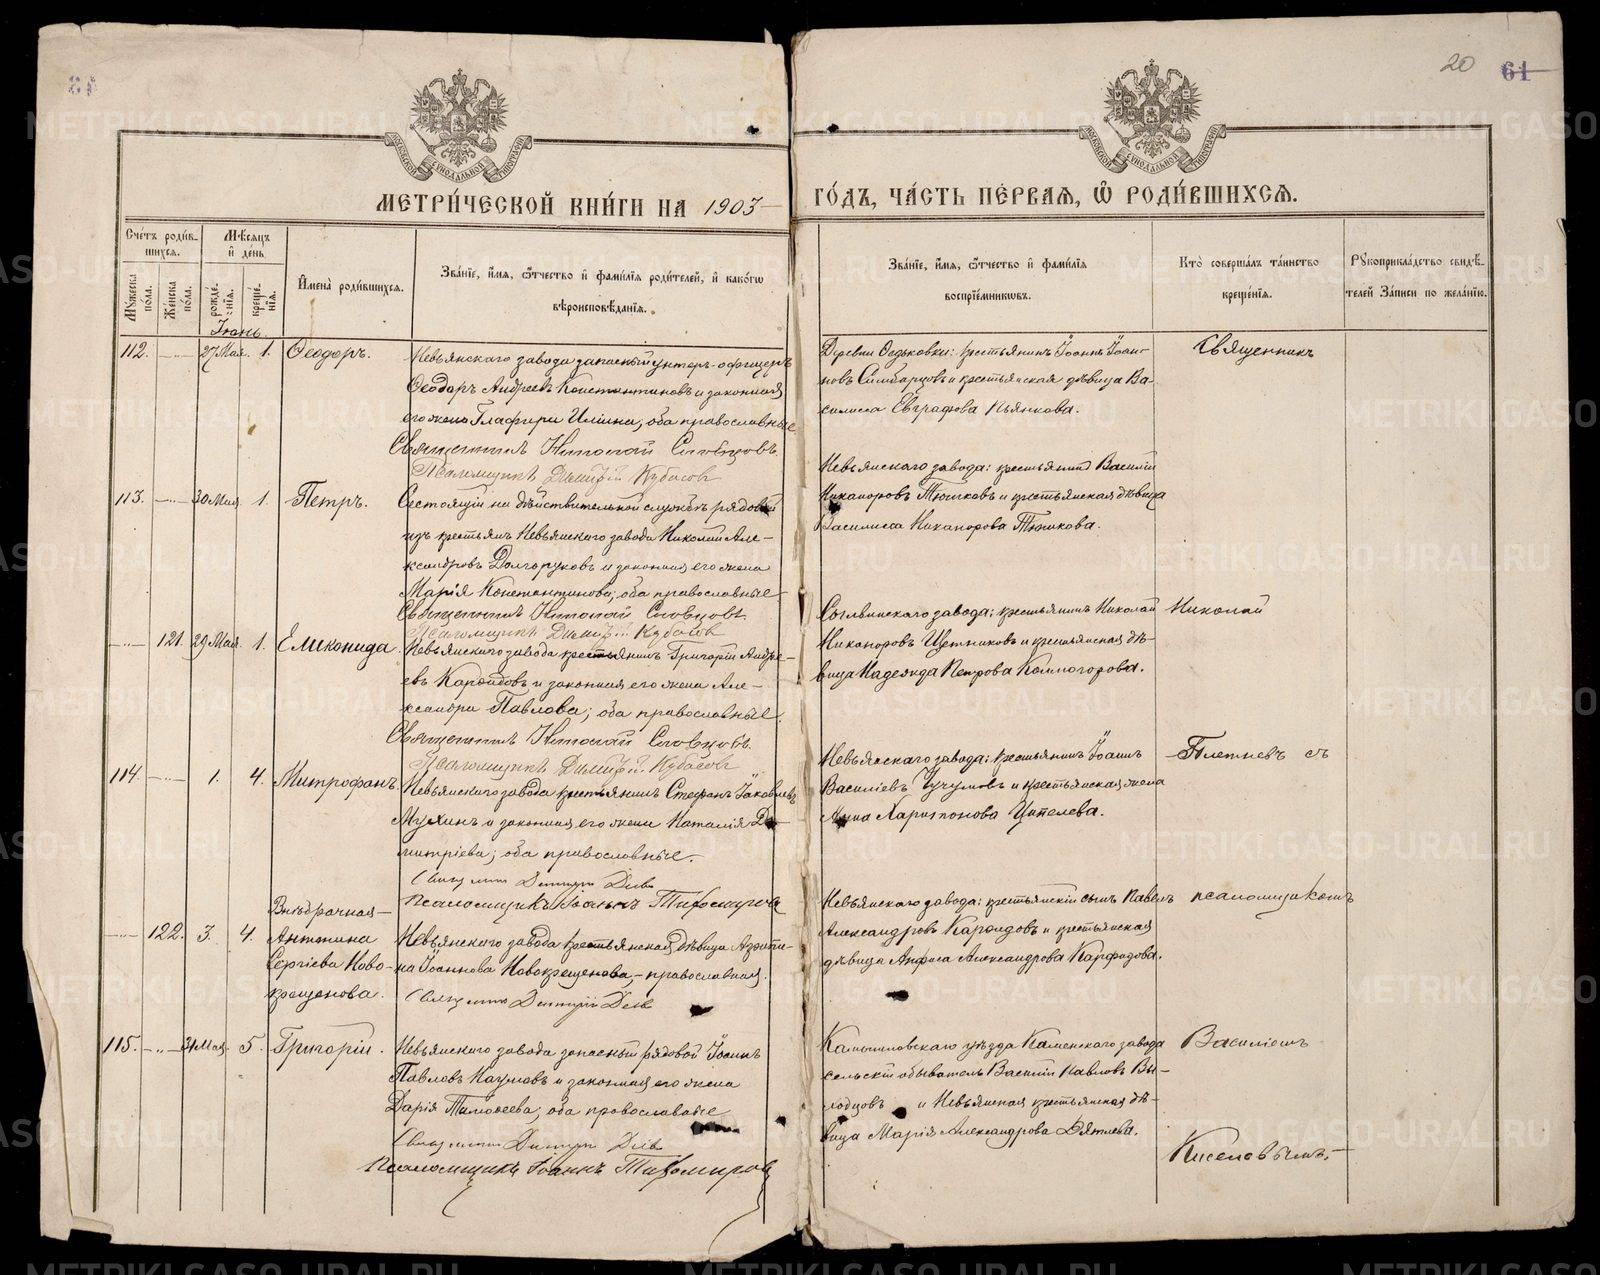 20 61
МЕТРИ́ЧЕСКОЙ КНИ́ГИ НА 1903
ГО́ДЪ, ЧА́СТЬ ПЕ́РВАЯ, Ѽ РОДИ́ВШИХСЯ.
Сче́тъ роди́в-
шихся.
Мꙋжеска по́ла.
Же́нска по́ла.
Мѣ́сяцъ и҆ де́нь
рожде́нїя.
креще́нїя.
И҆мена̀ роди́вшихся.
Зва́нїе, и҆́мя, ѻ҆́тчество и҆ фами́лїя роди́телей, и҆ како́гѡ
вѣроисповѣ́данїя.
Зва́нїе, и҆́мя, ѻ҆́тчество и҆ фами́лїя
воспрїе́мникѡвъ.
Кто̀ соверша́лъ та́инство
креще́нїя.
Рꙋкоприкла́дство свидѣ́-
телей За́писи по жела́нїю.
Іюнь.
112. 27 Мая. 1. Ѳеодоръ.
Невьянскаго завода запасный унтеръ-офицеръ
Ѳеодоръ Андреевъ Константиновъ и законная
его жена Глафира Ильина, оба православные
Священникъ Николай Словцовъ.
Псаломщикъ Димитрій Кубасовъ
Деревни Ѳедьковки: крестьянинъ Іоаннъ Іоан-
новъ и крестьянская дѣвица Ва-
силиса Евграфова Пьянкова.
Священникъ
113. 30 Мая. 1. Петръ.
Состоящій на дѣйствительной службѣ рядовой
изъ крестьянъ Невьянскаго завода Николай Але-
ксандровъ Долгоруковъ и законная его жена
Марія Константинова; оба православные
Священникъ Николай Словцовъ
Псаломщикъ Димитрій Кубасовъ
Невьянскаго завода: крестьянинъ Василій
Никаноровъ Тюшковъ и крестьянская дѣвица
Василиса Никанорова Тюшкова.
121. 29 Мая. 1. Еликонида.
Невьянскаго завода крестьянинъ Григорій Андре-
евъ Карфидовъ и законная его жена Але-
ксандра Павлова; оба православные.
Священникъ Николай Словцовъ.
Псаломщикъ Димитрій Кубасовъ
завода: крестьянинъ Николай
Никаноровъ и крестьянская дѣ-
вица Надежда Петрова Колмогорова.
Николай
114. 1. 4. Митрофанъ.
Невьянскаго завода крестьянинъ Стефанъ Іаковлевъ
Мухинъ и законная его жена Наталія Ди-
митріева; оба православные.
Священникъ Димитрій
Псаломщикъ Іоаннъ Тихомировъ
Невьянскаго завода: крестьянинъ Іоаннъ
Василіевъ и крестьянская жена
Анна Харитонова
Плетневъ съ
122. 3. 4. Внѣбрачная
Антонина
Сергіева Ново-
крещенова.
Невьянскаго завода крестьянская дѣвица
Іоаннова Новокрещенова, православная.
Священникъ Димитрій
Невьянскаго завода: крестьянскій сынъ Павелъ
Александровъ Карфидовъ и крестьянская
дѣвица Анфиса Александрова Карфидова.
псаломщикомъ
115. 31 Мая. 5. Григорій.
Невьянскаго завода запасный рядовой Іоаннъ
Павловъ Наумовъ и законная его жена
Дарія Тимоѳеева; оба православные
Священникъ Димитрій
Псаломщикъ Іоаннъ Тихомировъ
Камышловскаго уѣзда Каменскаго завода
сельскій обыватель Василій Павловъ
и Невьянская крестьянская дѣ-
вица Марія Александрова Дятлева.
Василіемъ
Киселевымъ.